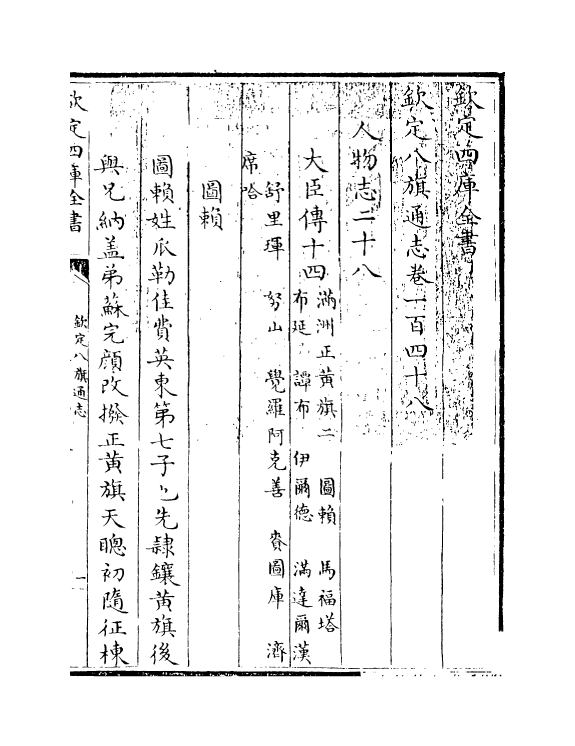 欽定四庫全書
欽定八旗通志卷一百四十八
人物志二十八
大臣傳十四 滿洲正黃旗二 圖賴 馬福塔
布延 譚布 伊爾德 滿達爾漢
舒里琿 努山 覺羅阿克善 賚圖庫 濟
席哈
圖賴
圖賴姓瓜勒佳費英東第七子也先隸鑲黃旗後
與兄納蓋弟蘇完顔改撥正黃旗天聰初隨征棟
欽定四庫全書 欽定八旗通志 一